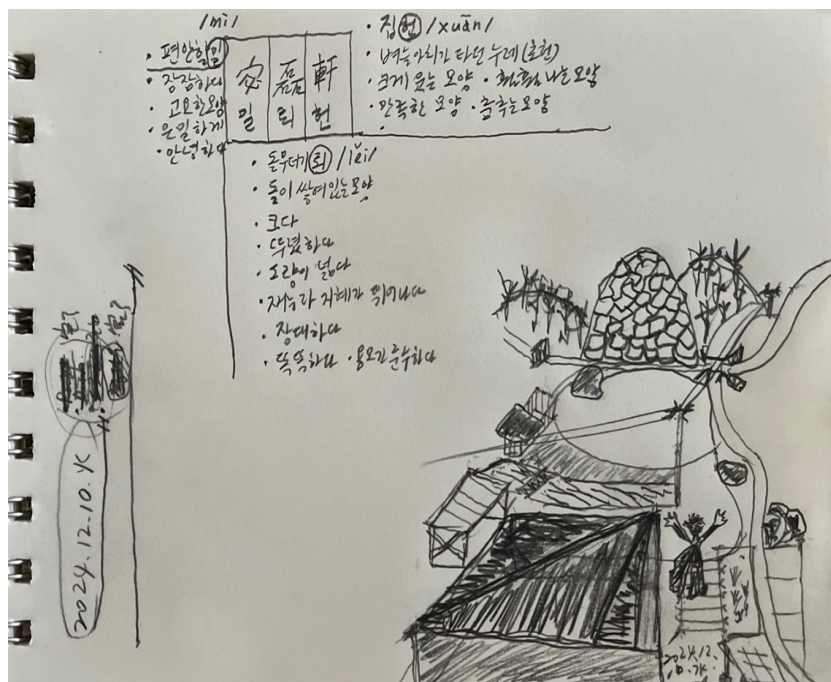 /mì/
• 편안할 밀
• 잠잠하다
• 고요한모양
• 은밀하게
• 안녕하다
宓 磊 軒
밀 뢰 헌
• 집 헌 /xuān/
• 벼슬아치가 타던 수레(초헌)
• 크게 웃는 모양 • 훨훨 나는 모양
• 만족한 모양 • 춤추는 모양
• 돌무더기 뢰 /lěi/
• 돌이 쌓여있는 모양
• 크다
• 뚜렷하다
• 도량이 넓다
• 재능과 지혜가 뛰어나다
• 장대하다
• 똑똑하다 • 용모가 준수하다
2024.12.10.火
2024.12.
10.火.